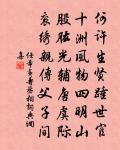 何许生贤踵世官
十洲风物四明山
股肱光辅唐虞际
衮绣亲传父子间
任希夷寿丞相词典调
集